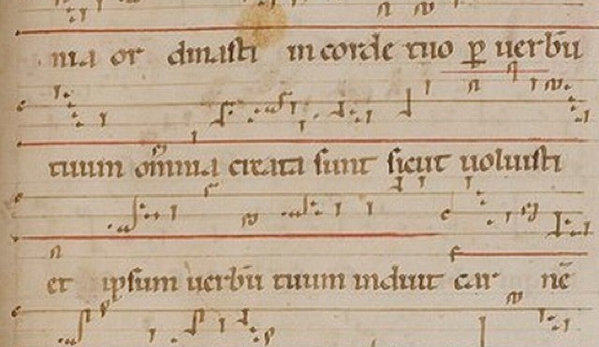 nia or dinasti in corde tuo ꝑ uerbū
tuum om̅nia creata sunt sicut uoluisti
et ipsum uerbū tuum induit car nē